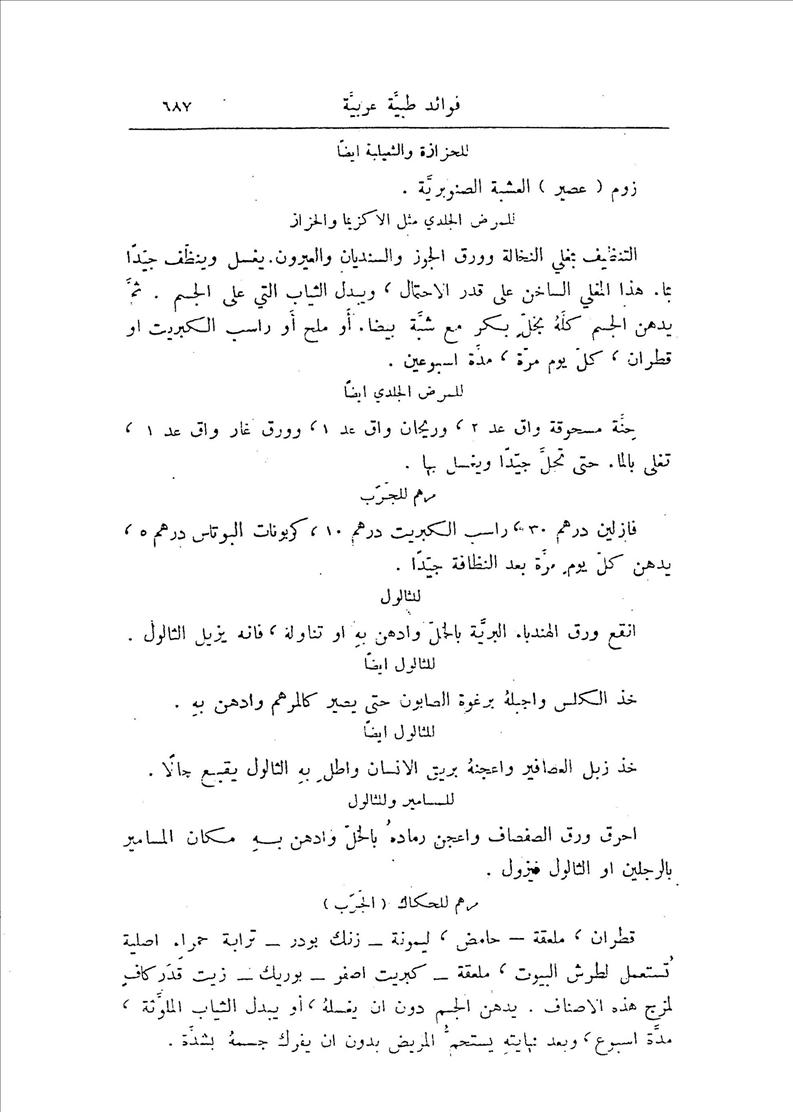 فوائد طبيَّة عربيَّة ٦٨٧
للحزازة والثعيلبة ايضًا
زوم ( عصير ) العشبة الصنوبريَّة .
للمرض الجلدي مثل الاكزيما والحزاز
التنظيف بمغلي النخالة وورق الجوز والسنديان والعيرون. يغسل وينظَّف جيّدًا
بماء هذا المغلي الساخن على قدر الاحتمال ، ويبدل الثياب التي على الجسم . ثمَّ
يدهن الجسم كلَّهُ بخلّ بكر مع شبَّة بيضاء أو ملح أو راسب الكبريت او
قطران ، كلّ يوم مرّة ، مدَّة اسبوعين .
للمرض الجلدي ايضًا
حِنَّة مسحوقة واق عد ٢ ، وريحان واق عد ١ ، وورق غار واق عد ١ ،
تغلى بالماء حتى تحلَّ جيّدًا ويغسل بها .
مرهم للجَرَب
فازلين درهم ٣٠ ، راسب الكبريت درهم ١٠ ، كربونات البوتاس درهم ٥ ،
يدهن كلّ يوم مرَّة بعد النظافة جيّدًا .
للثالول
انقع ورق الهندباء البريَّة بالخلّ وادهن بهِ او تناولة ، فانه يزيل الثالول .
للثالول ايضًا
خذ الكلس واجبلهُ برغوة الصابون حتى يصير كالمرهم وادهن بهِ .
للثالول ايضًا
خذ زبل العصافير واعجنهُ بريق الانسان واطلِ بهِ الثالول يقبع حالًا .
للمسامير وللثالول
احرق ورق الصفصاف واعجن رمادهُ بالخلّ وادهن بـــهِ مكان المسامير
بالرجلين او الثالول فيزول .
مرهم للحكاك ( الجَرَب )
قطران ، ملعقة – حامض ، ليمونة – زنك بودر – ترابة حمراء اصلية
تُستعمل لطرش البيوت ، ملعقة – كبريت اصفر – بوريك – زيت قدَر كافٍ
لمزج هذه الاصناف . يدهن الجسم دون ان يغسلهُ ، أو يبدل الثياب الملوَّثة ،
مدَّة اسبوع ، وبعد نهايتهِ يستحمُّ المريض بدون ان يفرك جسمهُ بشدَّة .